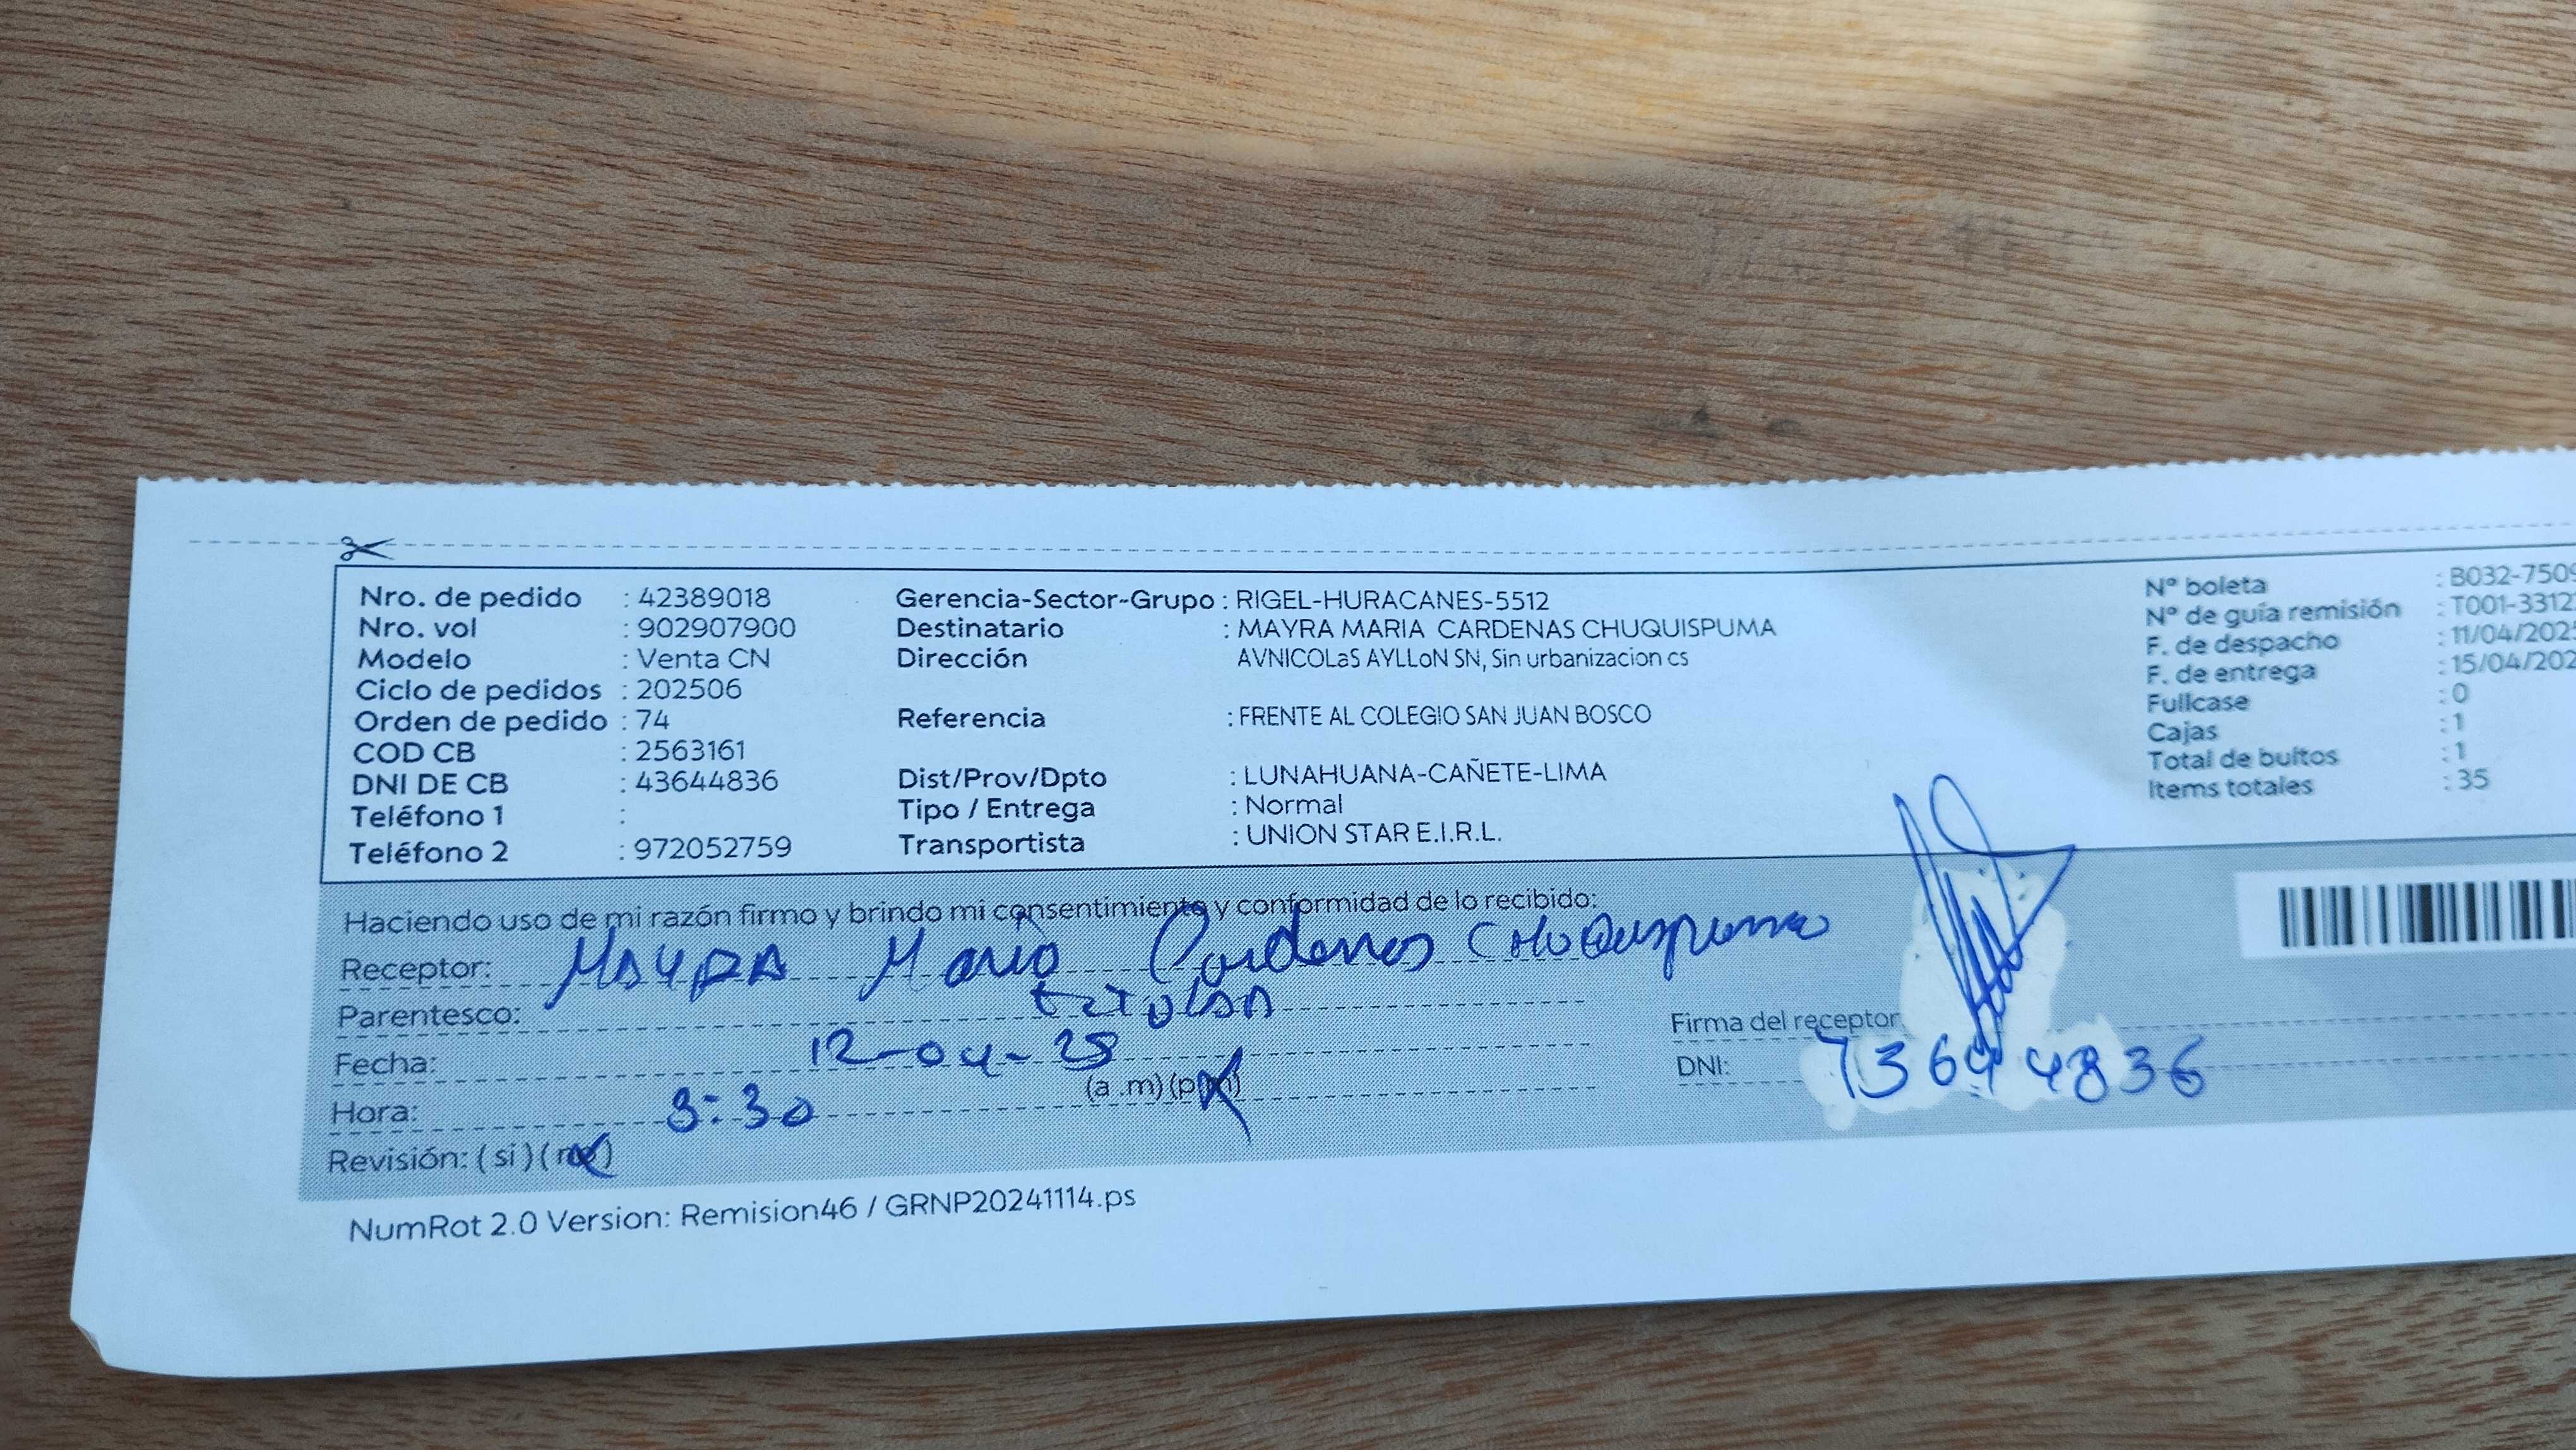 Nro. de pedido : 42389018
Nro. vol : 902907900
Modelo : Venta CN
Ciclo de pedidos : 202506
Orden de pedido : 74
COD CB : 2563161
DNI DE CB : 43644836
Teléfono 1 :
Teléfono 2 : 972052759
Gerencia-Sector-Grupo : RIGEL-HURACANES-5512
Destinatario : MAYRA MARIA CARDENAS CHUQUISPUMA
Dirección AVNICOLaS AYLLoN SN, Sin urbanizacion cs
Referencia : FRENTE AL COLEGIO SAN JUAN BOSCO
Dist/Prov/Dpto : LUNAHUANA-CAÑETE-LIMA
Tipo / Entrega : Normal
Transportista : UNION STAR E.I.R.L.
Nº boleta : B032-7509
Nº de guía remisión : T001-3312
F. de despacho : 11/04/202
F. de entrega : 15/04/202
Fullcase : 0
Cajas : 1
Total de bultos : 1
Items totales : 35
Haciendo uso de mi razón firmo y brindo mi consentimiento y conformidad de lo recibido:
Receptor: MAYRA Maria Cardenas
Parentesco:
Fecha: 12-04-25
Hora: 3:30 (a.m) (pm)
Revisión: (si) (no)
Firma del receptor
DNI: 73644836
NumRot 2.0 Version: Remision46 / GRNP20241114.ps